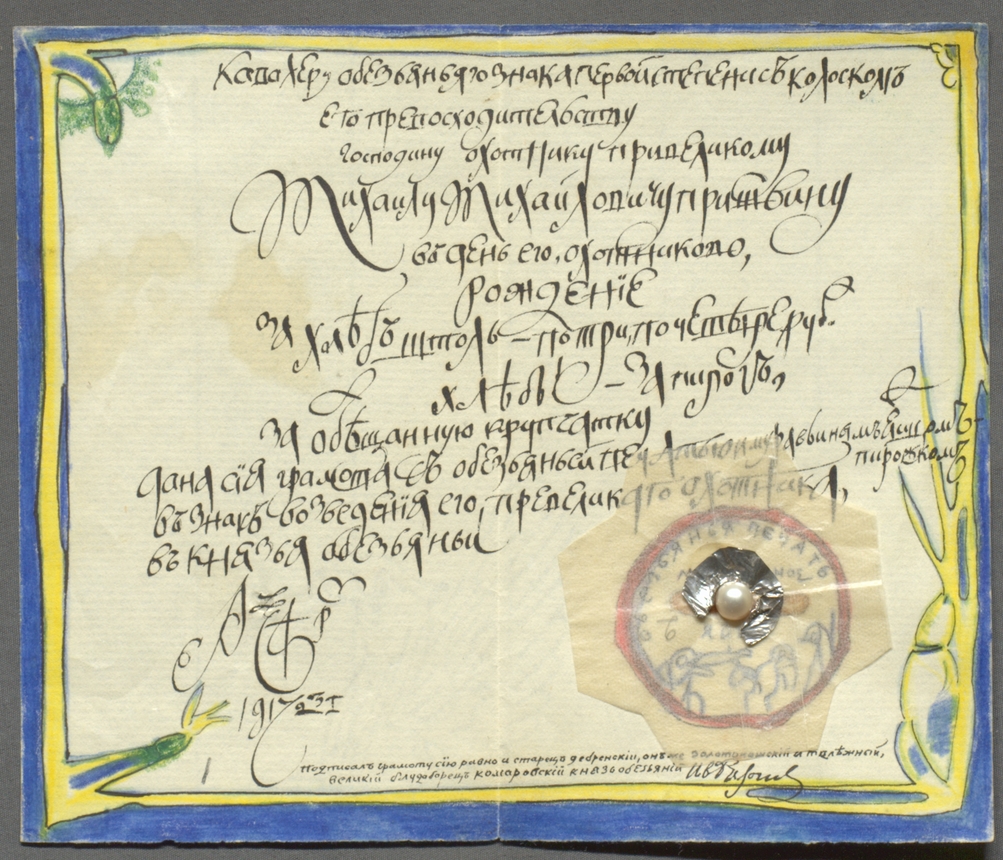 Кавалеру обезьяньяго знака первой степени съ колоскомъ
его превосходительству
господину охотнику привеликому
Михаилу Михайловичу Пришвину
въ день его, охотниково,
рождение
За хлѣбъ щтоль – по три, по четыре руб.
хлѣбъ – за пирогъ,
за обѣщанную крупчатку
дана сiя грамота съ обезьяньей печатью
пирожкомъ
въ знакъ возведенiя его, превеликаго охотника,
въ князья обезьяньи
1917 23 I
обезьянья печать
Подписалъ грамоту сiю равно и старецъ дебренскiй, онъ же залотоношскiй и таежный,
великiй блудоборецъ комаровскiй князь обезьянiй